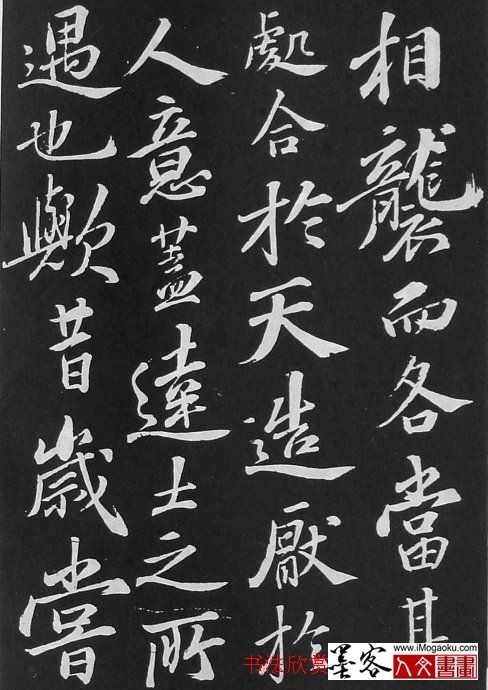 相龍袭而各當其
處合於天造厭於
人意蓋達士之所
遇也歟昔歲嘗
书法欣赏
墨客
www.iMogaoku.com
人文書畫